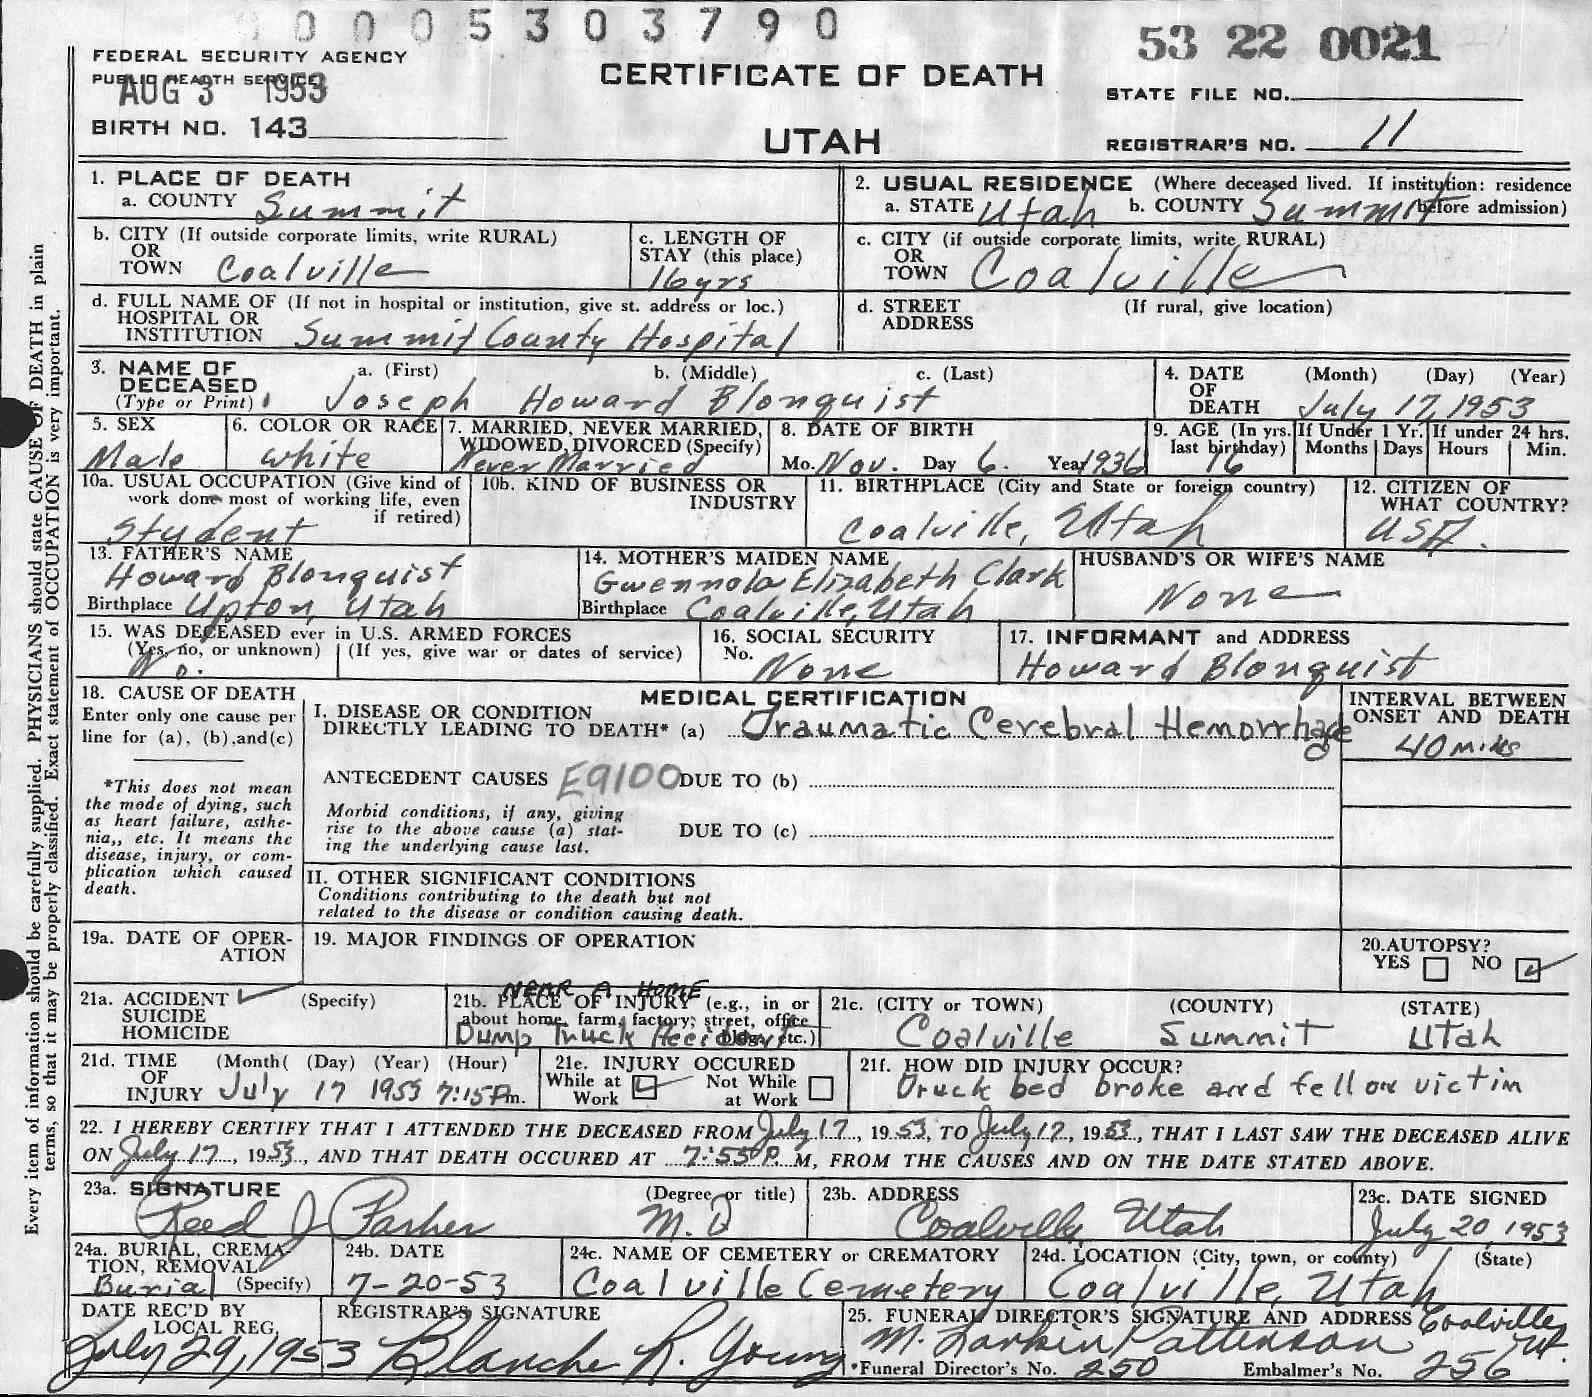 0005303790
53 22 0021
FEDERAL SECURITY AGENCY
PUBLIC HEALTH SERVICE
AUG 3 1953
CERTIFICATE OF DEATH
STATE FILE NO.
BIRTH NO. 143
UTAH
REGISTRAR'S NO. 11
1. PLACE OF DEATH
a. COUNTY Summit
2. USUAL RESIDENCE (Where deceased lived. If institution: residence before admission)
a. STATE Utah b. COUNTY Summit
b. CITY (If outside corporate limits, write RURAL)
OR
TOWN Coalville
c. LENGTH OF
STAY (this place)
16 yrs
c. CITY (if outside corporate limits, write RURAL)
OR
TOWN Coalville
d. FULL NAME OF (If not in hospital or institution, give st. address or loc.)
HOSPITAL OR
INSTITUTION Summit County Hospital
d. STREET (If rural, give location)
ADDRESS
3. NAME OF DECEASED
(Type or Print)
a. (First) b. (Middle) c. (Last)
Joseph Howard Blonquist
4. DATE OF DEATH (Month) (Day) (Year)
July 17, 1953
5. SEX
Male
6. COLOR OR RACE
White
7. MARRIED, NEVER MARRIED,
WIDOWED, DIVORCED (Specify)
Never Married
8. DATE OF BIRTH
Mo. Nov. Day 6. Year 1936
9. AGE (In yrs. last birthday)
16
If Under 1 Yr. Months Days
If under 24 hrs. Hours Min.
10a. USUAL OCCUPATION (Give kind of
work done most of working life, even
if retired)
Student
10b. KIND OF BUSINESS OR
INDUSTRY
11. BIRTHPLACE (City and State or foreign country)
Coalville, Utah
12. CITIZEN OF
WHAT COUNTRY?
USA.
13. FATHER'S NAME
Howard Blonquist
Birthplace Upton, Utah
14. MOTHER'S MAIDEN NAME
Gwennola Elizabeth Clark
Birthplace Coalville, Utah
HUSBAND'S OR WIFE'S NAME
None
15. WAS DECEASED ever in U.S. ARMED FORCES
(Yes, no, or unknown) (If yes, give war or dates of service)
No.
16. SOCIAL SECURITY
No. None
17. INFORMANT and ADDRESS
Howard Blonquist
18. CAUSE OF DEATH
Enter only one cause per
line for (a), (b), and (c)
*This does not mean
the mode of dying, such
as heart failure, asthe-
nia,, etc. It means the
disease, injury, or com-
plication which caused
death.
MEDICAL CERTIFICATION
I. DISEASE OR CONDITION
DIRECTLY LEADING TO DEATH* (a) Traumatic Cerebral Hemorrhage
ANTECEDENT CAUSES E9100 DUE TO (b)
Morbid conditions, if any, giving
rise to the above cause (a) stat-
ing the underlying cause last.
DUE TO (c)
II. OTHER SIGNIFICANT CONDITIONS
Conditions contributing to the death but not
related to the disease or condition causing death.
INTERVAL BETWEEN
ONSET AND DEATH
40 mins
19a. DATE OF OPER-
ATION
19. MAJOR FINDINGS OF OPERATION
20. AUTOPSY?
YES NO ✓
21a. ACCIDENT ✓ (Specify)
SUICIDE
HOMICIDE
NEAR A HOME
21b. PLACE OF INJURY (e.g., in or
about home, farm, factory; street, office
bldg., etc.)
Dump Truck Accident
21c. (CITY or TOWN) (COUNTY) (STATE)
Coalville Summit Utah
21d. TIME OF INJURY (Month( (Day) (Year) (Hour)
July 17 1953 7:15 P.m.
21e. INJURY OCCURED
While at Work ✓ Not While at Work
21f. HOW DID INJURY OCCUR?
Truck bed broke and fell on victim
22. I HEREBY CERTIFY THAT I ATTENDED THE DECEASED FROM July 17, 1953, TO July 17, 1953, THAT I LAST SAW THE DECEASED ALIVE
ON July 17, 1953, AND THAT DEATH OCCURED AT 7:55 P. M, FROM THE CAUSES AND ON THE DATE STATED ABOVE.
23a. SIGNATURE (Degree or title)
Reed J Parker M.D
23b. ADDRESS
Coalville, Utah
23c. DATE SIGNED
July 20, 1953
24a. BURIAL, CREMA-
TION, REMOVAL
(Specify)
Burial
24b. DATE
7-20-53
24c. NAME OF CEMETERY OR CREMATORY
Coalville Cemetery
24d. LOCATION (City, town, or county) (State)
Coalville, Utah
DATE REC'D BY
LOCAL REG.
July 29, 1953
REGISTRAR'S SIGNATURE
Blanche R. Young
25. FUNERAL DIRECTOR'S SIGNATURE AND ADDRESS
M. Larkin Pattinson Coalville Ut.
*Funeral Director's No. 250 Embalmer's No. 256
Every item of information should be carefully supplied. PHYSICIANS should state CAUSE OF DEATH in plain
terms, so that it may be properly classified. Exact statement of OCCUPATION is very important.